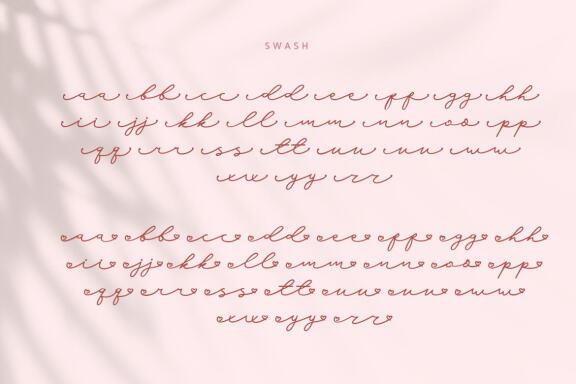 SWASH
aa bb cc dd ee ff gg hh
ii jj kk ll mm nn oo pp
qq rr ss tt uu uu ww
xx yy rr
aa bb cc dd ee ff gg hh
ii jj kk ll mm nn oo pp
qq rr ss tt uu uu ww
xx yy rr